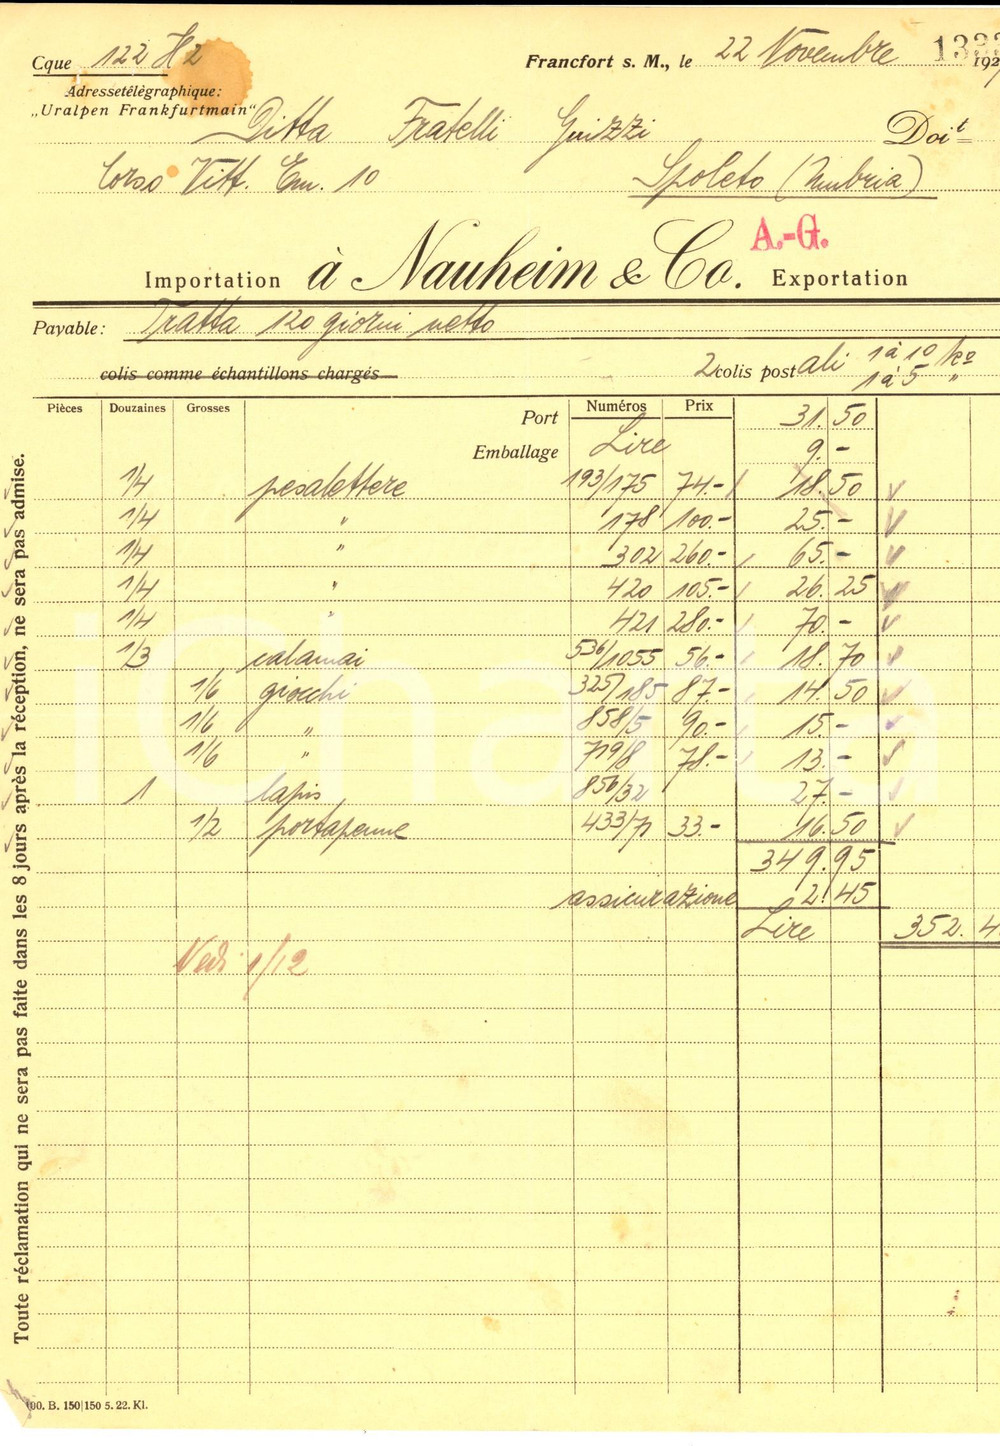 Cque 122 H2
Francfort s. M., le 22 Novembre 192
Adressetélégraphique:
„Uralpen Frankfurtmain“
Ditta Fratelli Guizzi Doit
Corso Vitt. Em. 10 Spoleto (Umbria)
A.-G.
Importation à Nauheim & Co. Exportation
Payable: Tratta 120 giorni netto
colis comme échantillons chargés 2 colis postali 1 à 10 ko
1 à 5 "
Pièces Douzaines Grosses Numéros Prix
Port 31.50
Emballage Lire 9.-
1/4 pesalettere 193/175 74.- 18.50
1/4 " 178 100.- 25.-
1/4 " 302 260.- 65.-
1/4 " 420 105.- 26.25
1/4 " 421 280.- 70.-
1/3 calamai 536/1055 56.- 18.70
1/6 giocchi 325/185 87.- 14.50
1/6 " 858/5 90.- 15.-
1/6 " 719/8 78.- 13.-
1 lapis 856/32 27.-
1/2 portapenne 433/71 33.- 16.50
349.95
assicurazione 2.45
Lire 352.4
Vedi 1/12
Toute réclamation qui ne sera pas faite dans les 8 jours après la réception, ne sera pas admise.
100. B. 150|150 5. 22. Kl.